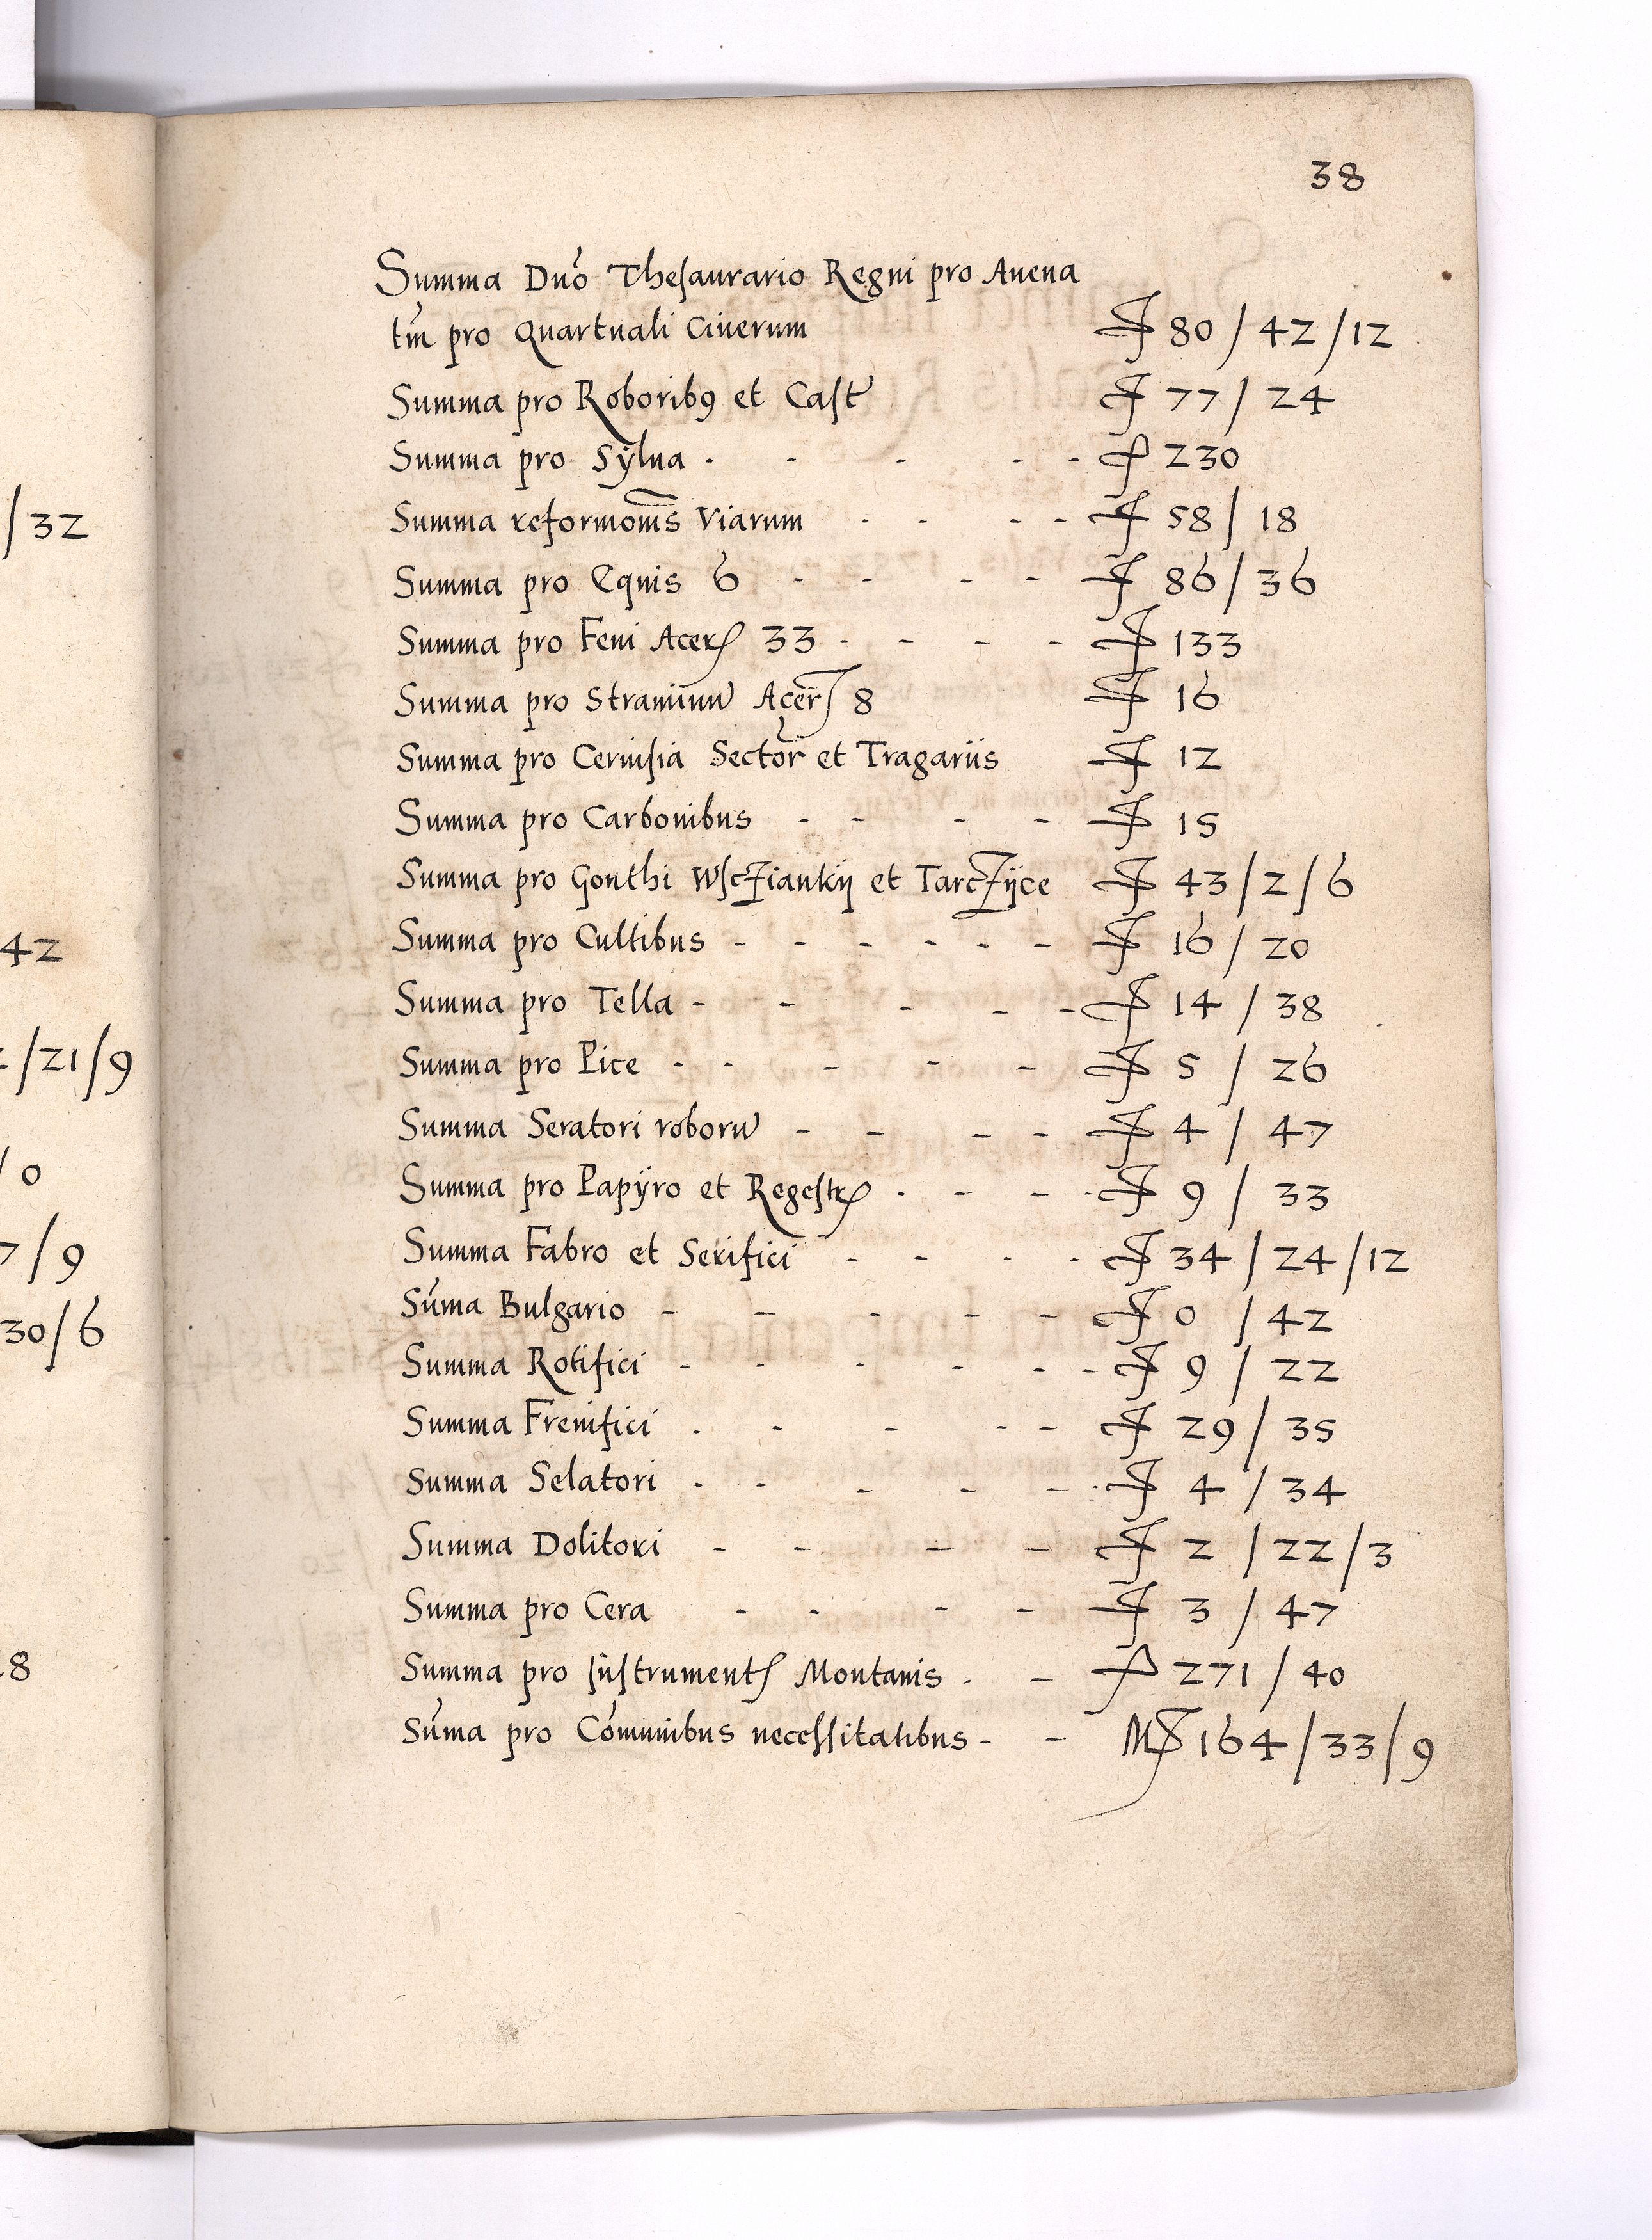 /32
42
/21/9
/0
7/9
30/6
28
38
Summa Dno Thesaurario Regni pro Auena
tm pro Quartuali Ciuerum ₣ 80 / 42 / 12
Summa pro Roboribꝯ et Cast ₣ 77 / 24
Summa pro Sÿlua . - - - - ₣ 230
Summa reformoms Viarum . - - - ₣ 58 / 18
Summa pro Equis 6 - - - - ₣ 86 / 36
Summa pro Feni Acerꝭ 33 - - - - ₣ 133
Summa pro Straminu Acerꝭ 8 ₣ 16
Summa pro Ceruisia Sector et Tragariis ₣ 12
Summa pro Carbonibus - - - - ₣ 15
Summa pro Gonthi Wscziankÿ et Tarczÿce ₣ 43 / 2 / 6
Summa pro Cultibus - - - - - - ₣ 16 / 20
Summa pro Tella - - - - - ₣ 14 / 38
Summa pro Pice - - - - - ₣ 5 / 26
Summa Seratori roboru - - - - ₣ 4 / 47
Summa pro Papÿro et Regestrꝭ . - - . ₣ 9 / 33
Summa Fabro et Serifici - - - . ₣ 34 / 24 / 12
Suma Bulgario - - - - - ₣ 0 / 42
Summa Rotifici - - - - - - ₣ 9 / 22
Summa Frenifici . - - - - ₣ 29 / 35
Summa Selatori . - - - - . ₣ 4 / 34
Summa Dolitori - - - - ₣ 2 / 22 / 3
Summa pro Cera - - - - ₣ 3 / 47
Summa pro Instrumentꝭ Montanis . - ₣ 271 / 40
Suma pro Comunibus necessitatibus - - M 164 / 33 / 9